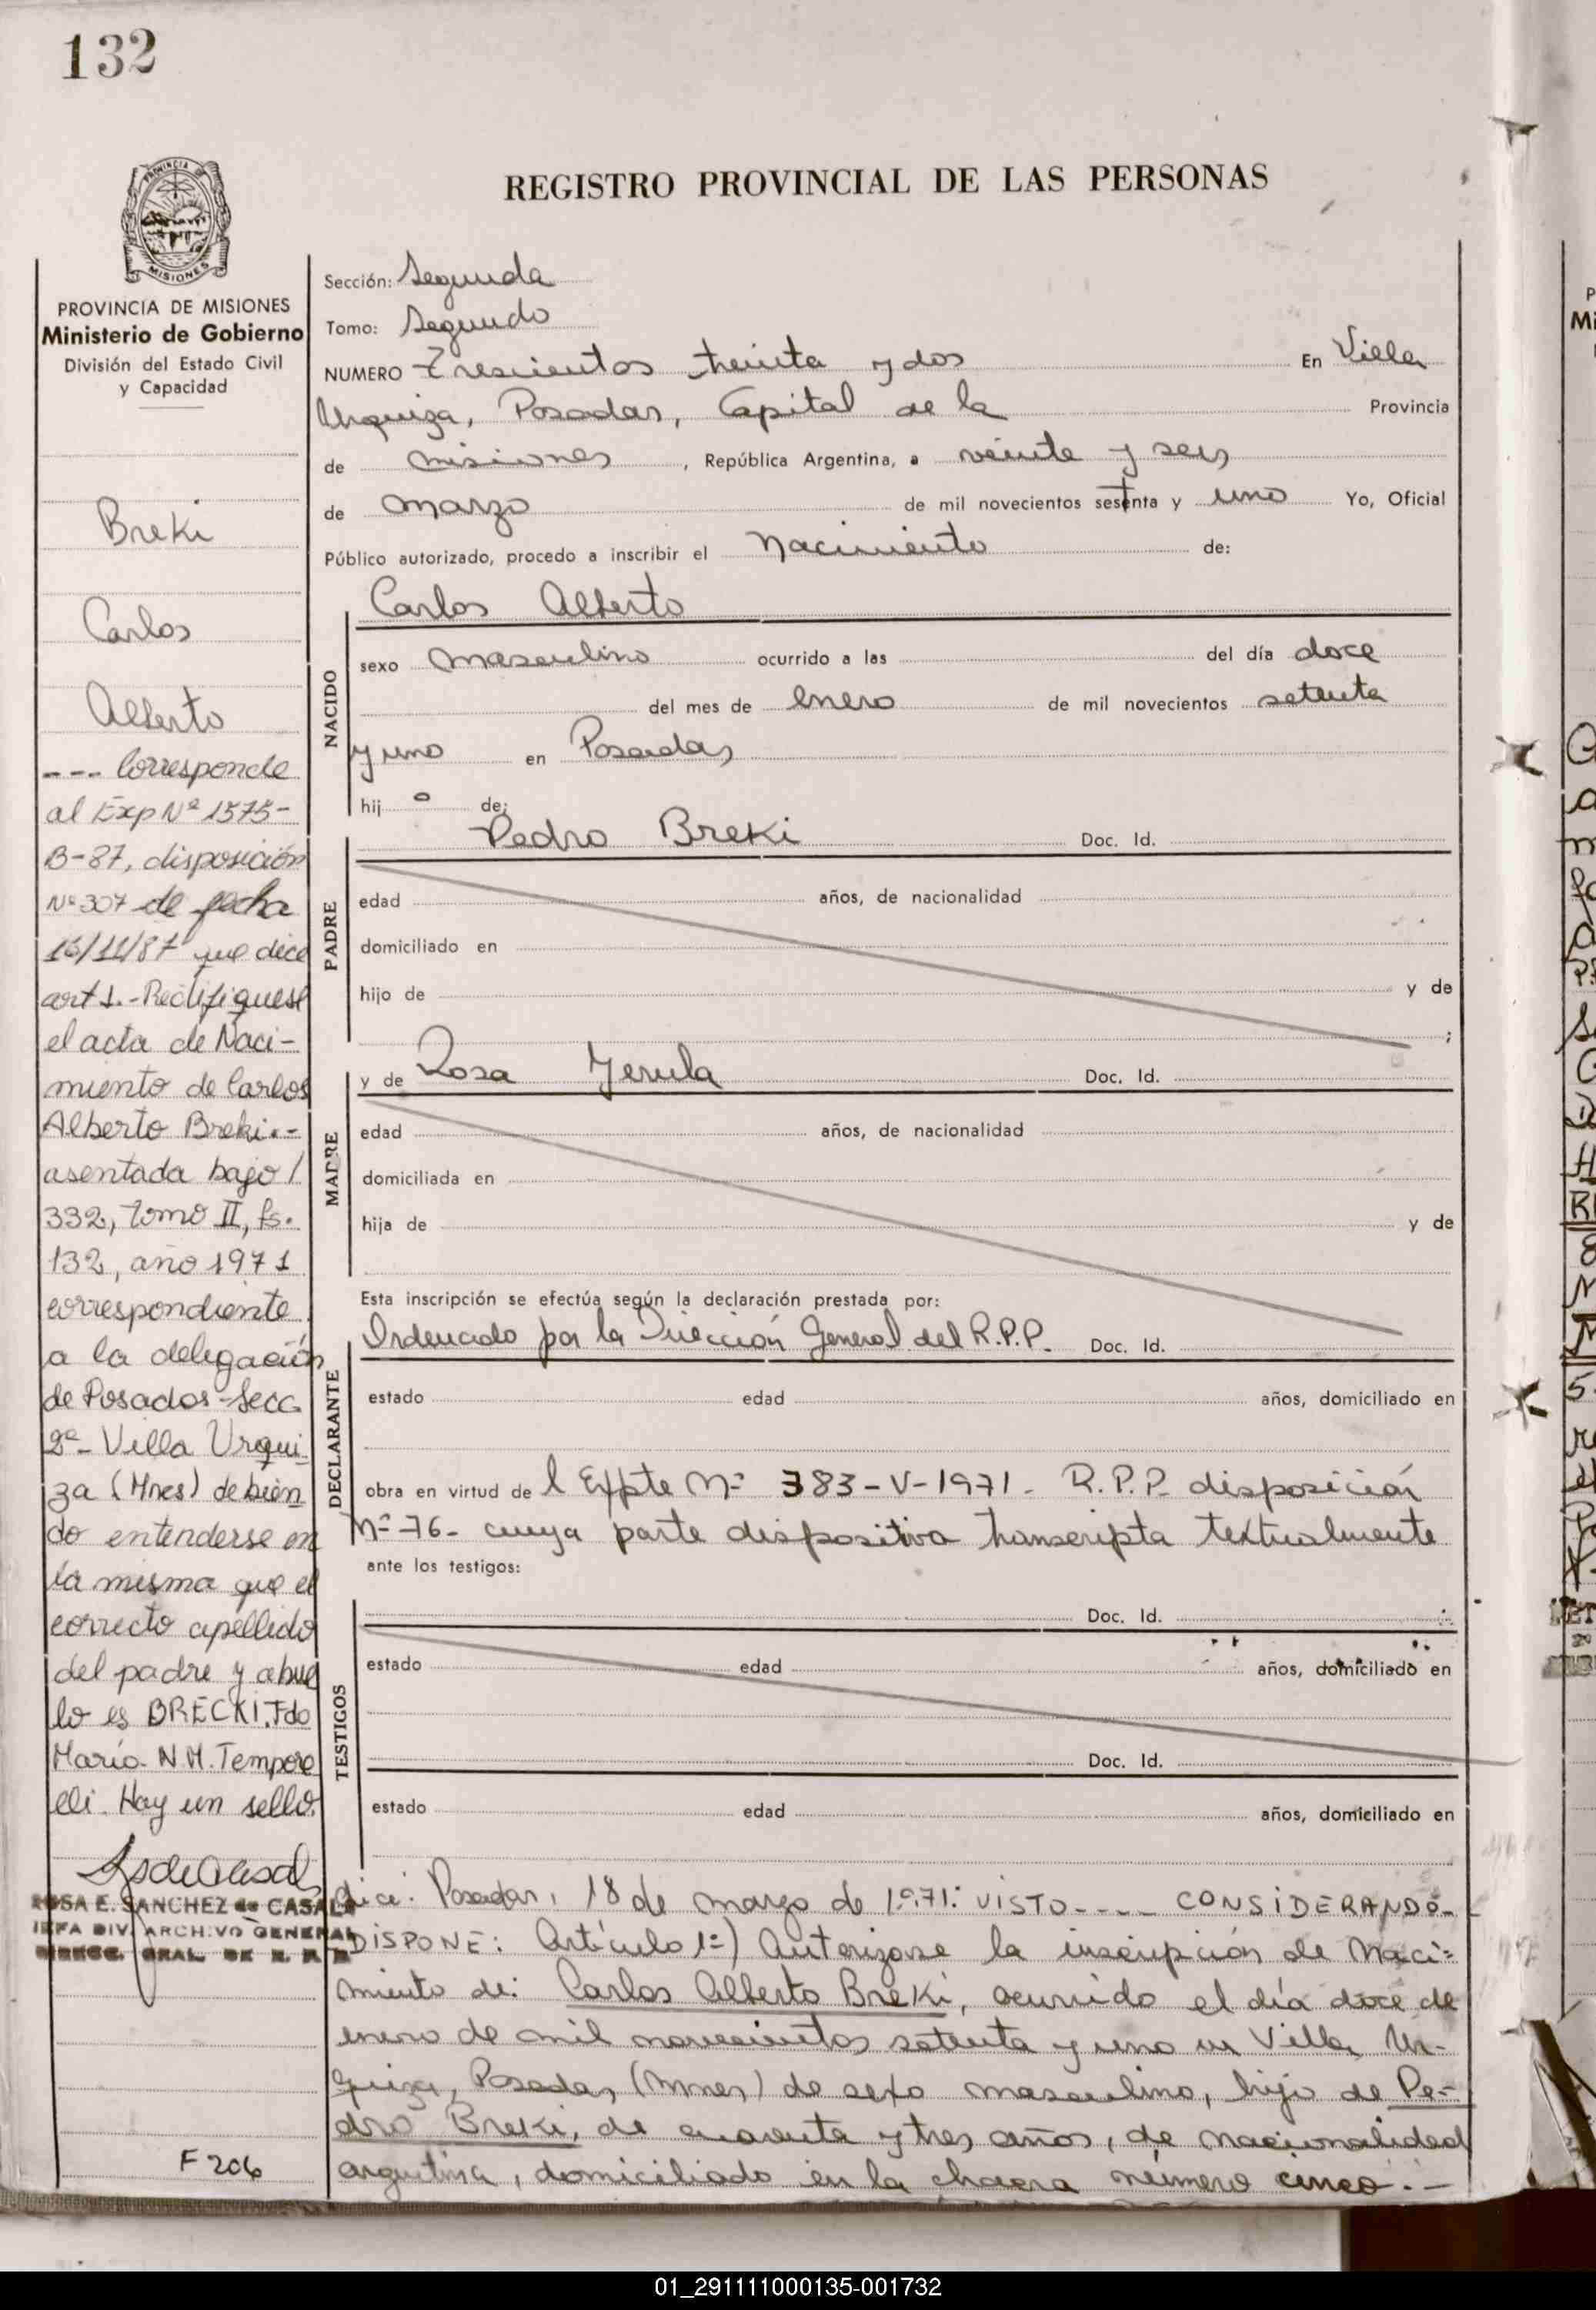 132
REGISTRO PROVINCIAL DE LAS PERSONAS
MISIONES
PROVINCIA DE MISIONES
Ministerio de Gobierno
División del Estado Civil
y Capacidad
Breki
Carlos
Alberto
--- Corresponde
al Exp Nº 1575-
B-87, disposición
Nº 307 de fecha
16/11/87 que dice
art 1.- Rectifiquese
el acta de Naci-
miento de Carlos
Alberto Breki.-
asentada bajo /
332, tomo II, fs.
132, año 1971
correspondiente
a la delegación
de Posadas-Secc
2ª- Villa Urqui-
za (Mnes) debien
do entenderse en
la misma que el
correcto apellido
del padre y abue
lo es BRECKI. Fdo
Mario N.M. Tempore
lli. Hay un sello.
ROSA E. SANCHEZ de CASALA
JEFA DIV. ARCHIVO GENERAL
DIRECC. GRAL. DE R. P. P.
F 206
Sección: Segunda
Tomo: Segundo
NUMERO Trescientos treinta y dos En Villa
Urquiza, Posadas, Capital de la Provincia
de Misiones, República Argentina, a veinte y seis
de Marzo de mil novecientos sesenta y uno Yo, Oficial
Público autorizado, procedo a inscribir el Nacimiento de:
Carlos Alberto
NACIDO
sexo Masculino ocurrido a las del día doce
del mes de enero de mil novecientos setenta
y uno en Posadas
hij o de:
Pedro Breki Doc. Id.
PADRE
edad años, de nacionalidad
domiciliado en
hijo de y de
;
y de Rosa Yerula Doc. Id.
MADRE
edad años, de nacionalidad
domiciliada en
hija de y de
Esta inscripción se efectúa según la declaración prestada por:
Ordenado por la Dirección General del R.P.P. Doc. Id.
DECLARANTE
estado edad años, domiciliado en
obra en virtud de l Expte Nº 383-V-1971- R.P.P. disposición
Nº 76- cuya parte dispositiva transcripta textualmente
ante los testigos:
Doc. Id.
TESTIGOS
estado edad años, domiciliado en
Doc. Id.
estado edad años, domiciliado en
dice: Posadas, 18 de marzo de 1971: VISTO---- CONSIDERANDO-
DISPONE: Artículo 1º) Autorizase la inscripción de Naci-
miento de: Carlos Alberto Breki, ocurrido el día doce de
enero de mil novecientos setenta y uno en Villa Ur-
quiza, Posadas, (Mnes) de sexo masculino, hijo de Pe-
dro Breki, de cuarenta y tres años, de nacionalidad
argentina, domiciliado en la chacra número cinco.-
01_291111000135-001732